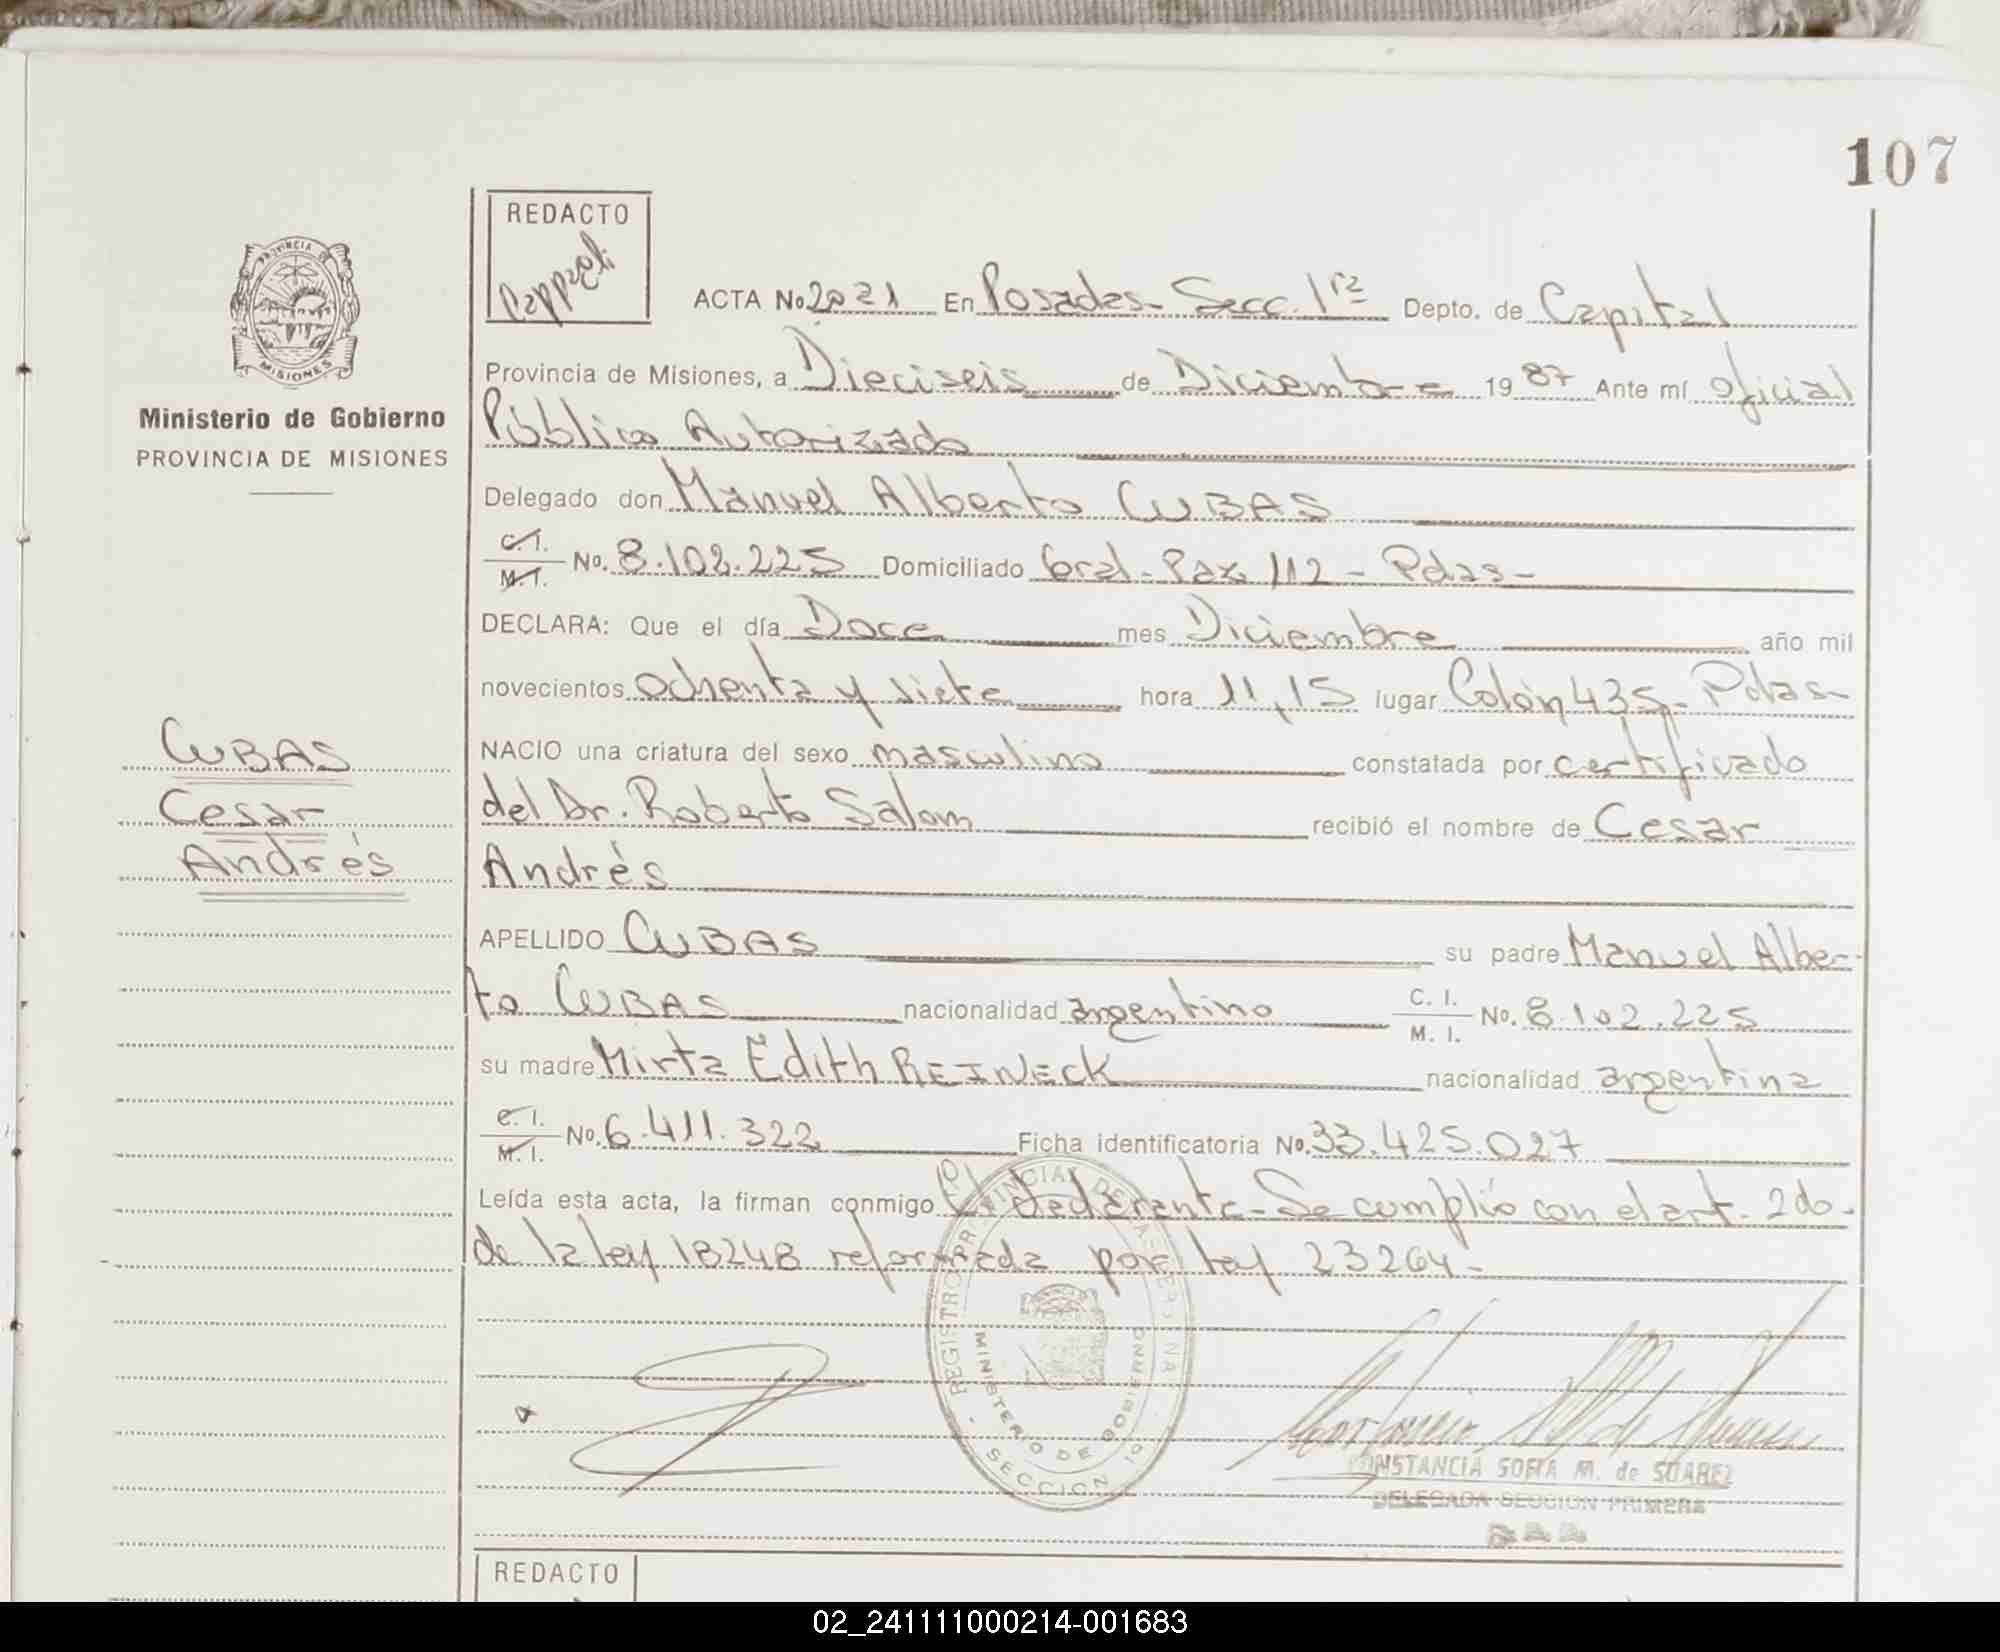 107
REDACTO
PROVINCIA DE
MISIONES
ACTA No 2021 En Posadas- Secc. 1ra Depto. de Capital
Ministerio de Gobierno
PROVINCIA DE MISIONES
Provincia de Misiones, a Dieciseis de Diciembre 1987 Ante mí oficial
Público Autorizado
Delegado don Manuel Alberto CUBAS
C.I. M.I. No. 8.102.225 Domiciliado Gral-Paz 112 - Pdas-
DECLARA: Que el día Doce mes Diciembre año mil
novecientos ochenta y siete hora 11,15 lugar Colón 435- Pdas-
CUBAS
Cesar
Andrés
NACIO una criatura del sexo masculino constatada por certificado
del Dr. Roberto Salom recibió el nombre de Cesar
Andrés
APELLIDO CUBAS su padre Manuel Alber-
to CUBAS nacionalidad argentino C. I. M. I. No. 8.102.225
su madre Mirta Edith REINECK nacionalidad argentina
C. I. M. I. No. 6.411.322 Ficha identificatoria No. 33.425.027
Leída esta acta, la firman conmigo El declarante- Se cumplió con el art. 2do.
de la ley 18248 reformada por ley 23264-
REGISTRO PROVINCIAL DE LAS PERSONAS
MINISTERIO DE GOBIERNO
SECCION 1a
CONSTANCIA SOFIA M. de SUAREZ
DELEGADA SECCION PRIMERA
REDACTO
02_241111000214-001683